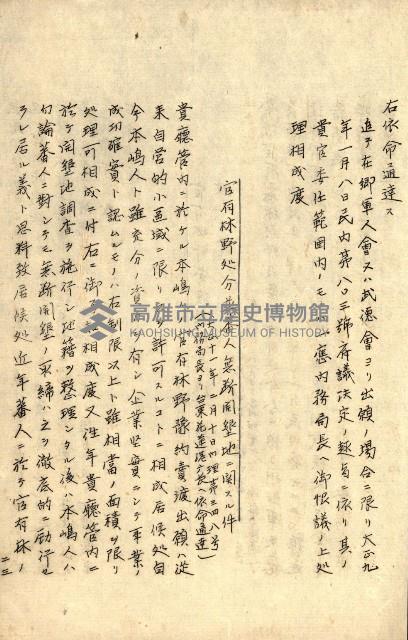 右依命通達ス
追テ在鄉軍人會又ハ武德會ヨリ出願ノ場合ニ限リ大正九
年一月八日民內第八〇三號府議決定ノ趣旨ニ依リ其ノ
貴官委任範囲内ノモノト雖一應內務局長ヘ御恊議ノ上処
理相成度
官有林野処分並本島人無断開墾地ニ関スル件
大正十一年二月十日內地理第三四八号
內務局長ヨリ台東花蓮港廳長ヘ依命通達
貴廳管內ニ於ケル本嶋人ノ官有林野豫約賣渡出願ハ從
来自営的小區域ニ限リ許可スルコトニ相成居候処自
今本嶋人ト雖充分ノ資力ヲ有シ企業堅實ニシテ事業ノ
成功確實ト認ムルモノハ右制限以上ト雖相當ノ面積ヲ限リ
処理可相成ニ付右ニ御了知相成度又往年貴廳管內ニ
於テ開墾地調査ヲ施行シ地籍ヲ整理シタル後ハ本嶋人ハ
勿論蕃人ニ對シテモ無断開墾ノ取締ハ之ヲ徹底的ニ勵行セ
ラレ居ル義ト思料致居候処近年蕃人ニ於テ官有林ノ
二三
高雄市立歷史博物館
KAOHSIUNG MUSEUM OF HISTORY